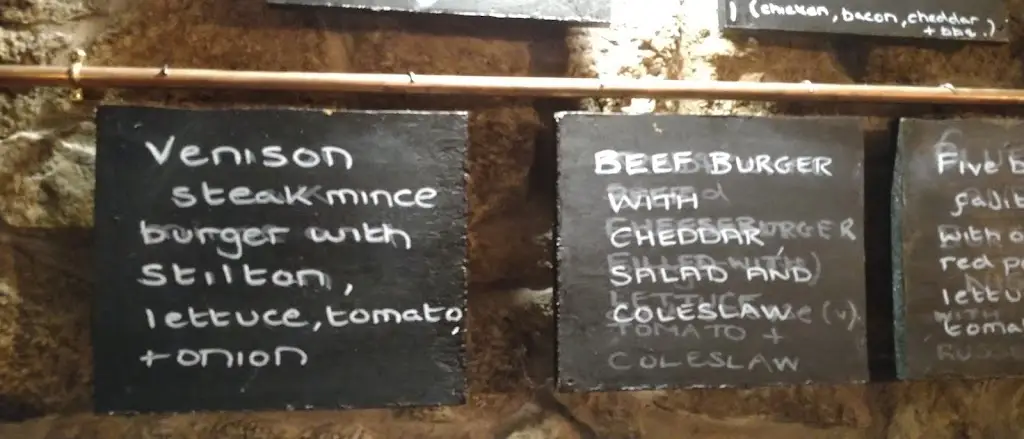 (chicken, bacon, cheddar
+ bbq.)
Venison
steak mince
burger with
stilton,
lettuce, tomato,
+ onion
BEEF BURGER
WITH
CHEDDAR,
SALAD AND
COLESLAW
TOMATO +
COLESLAW
Five
with
red